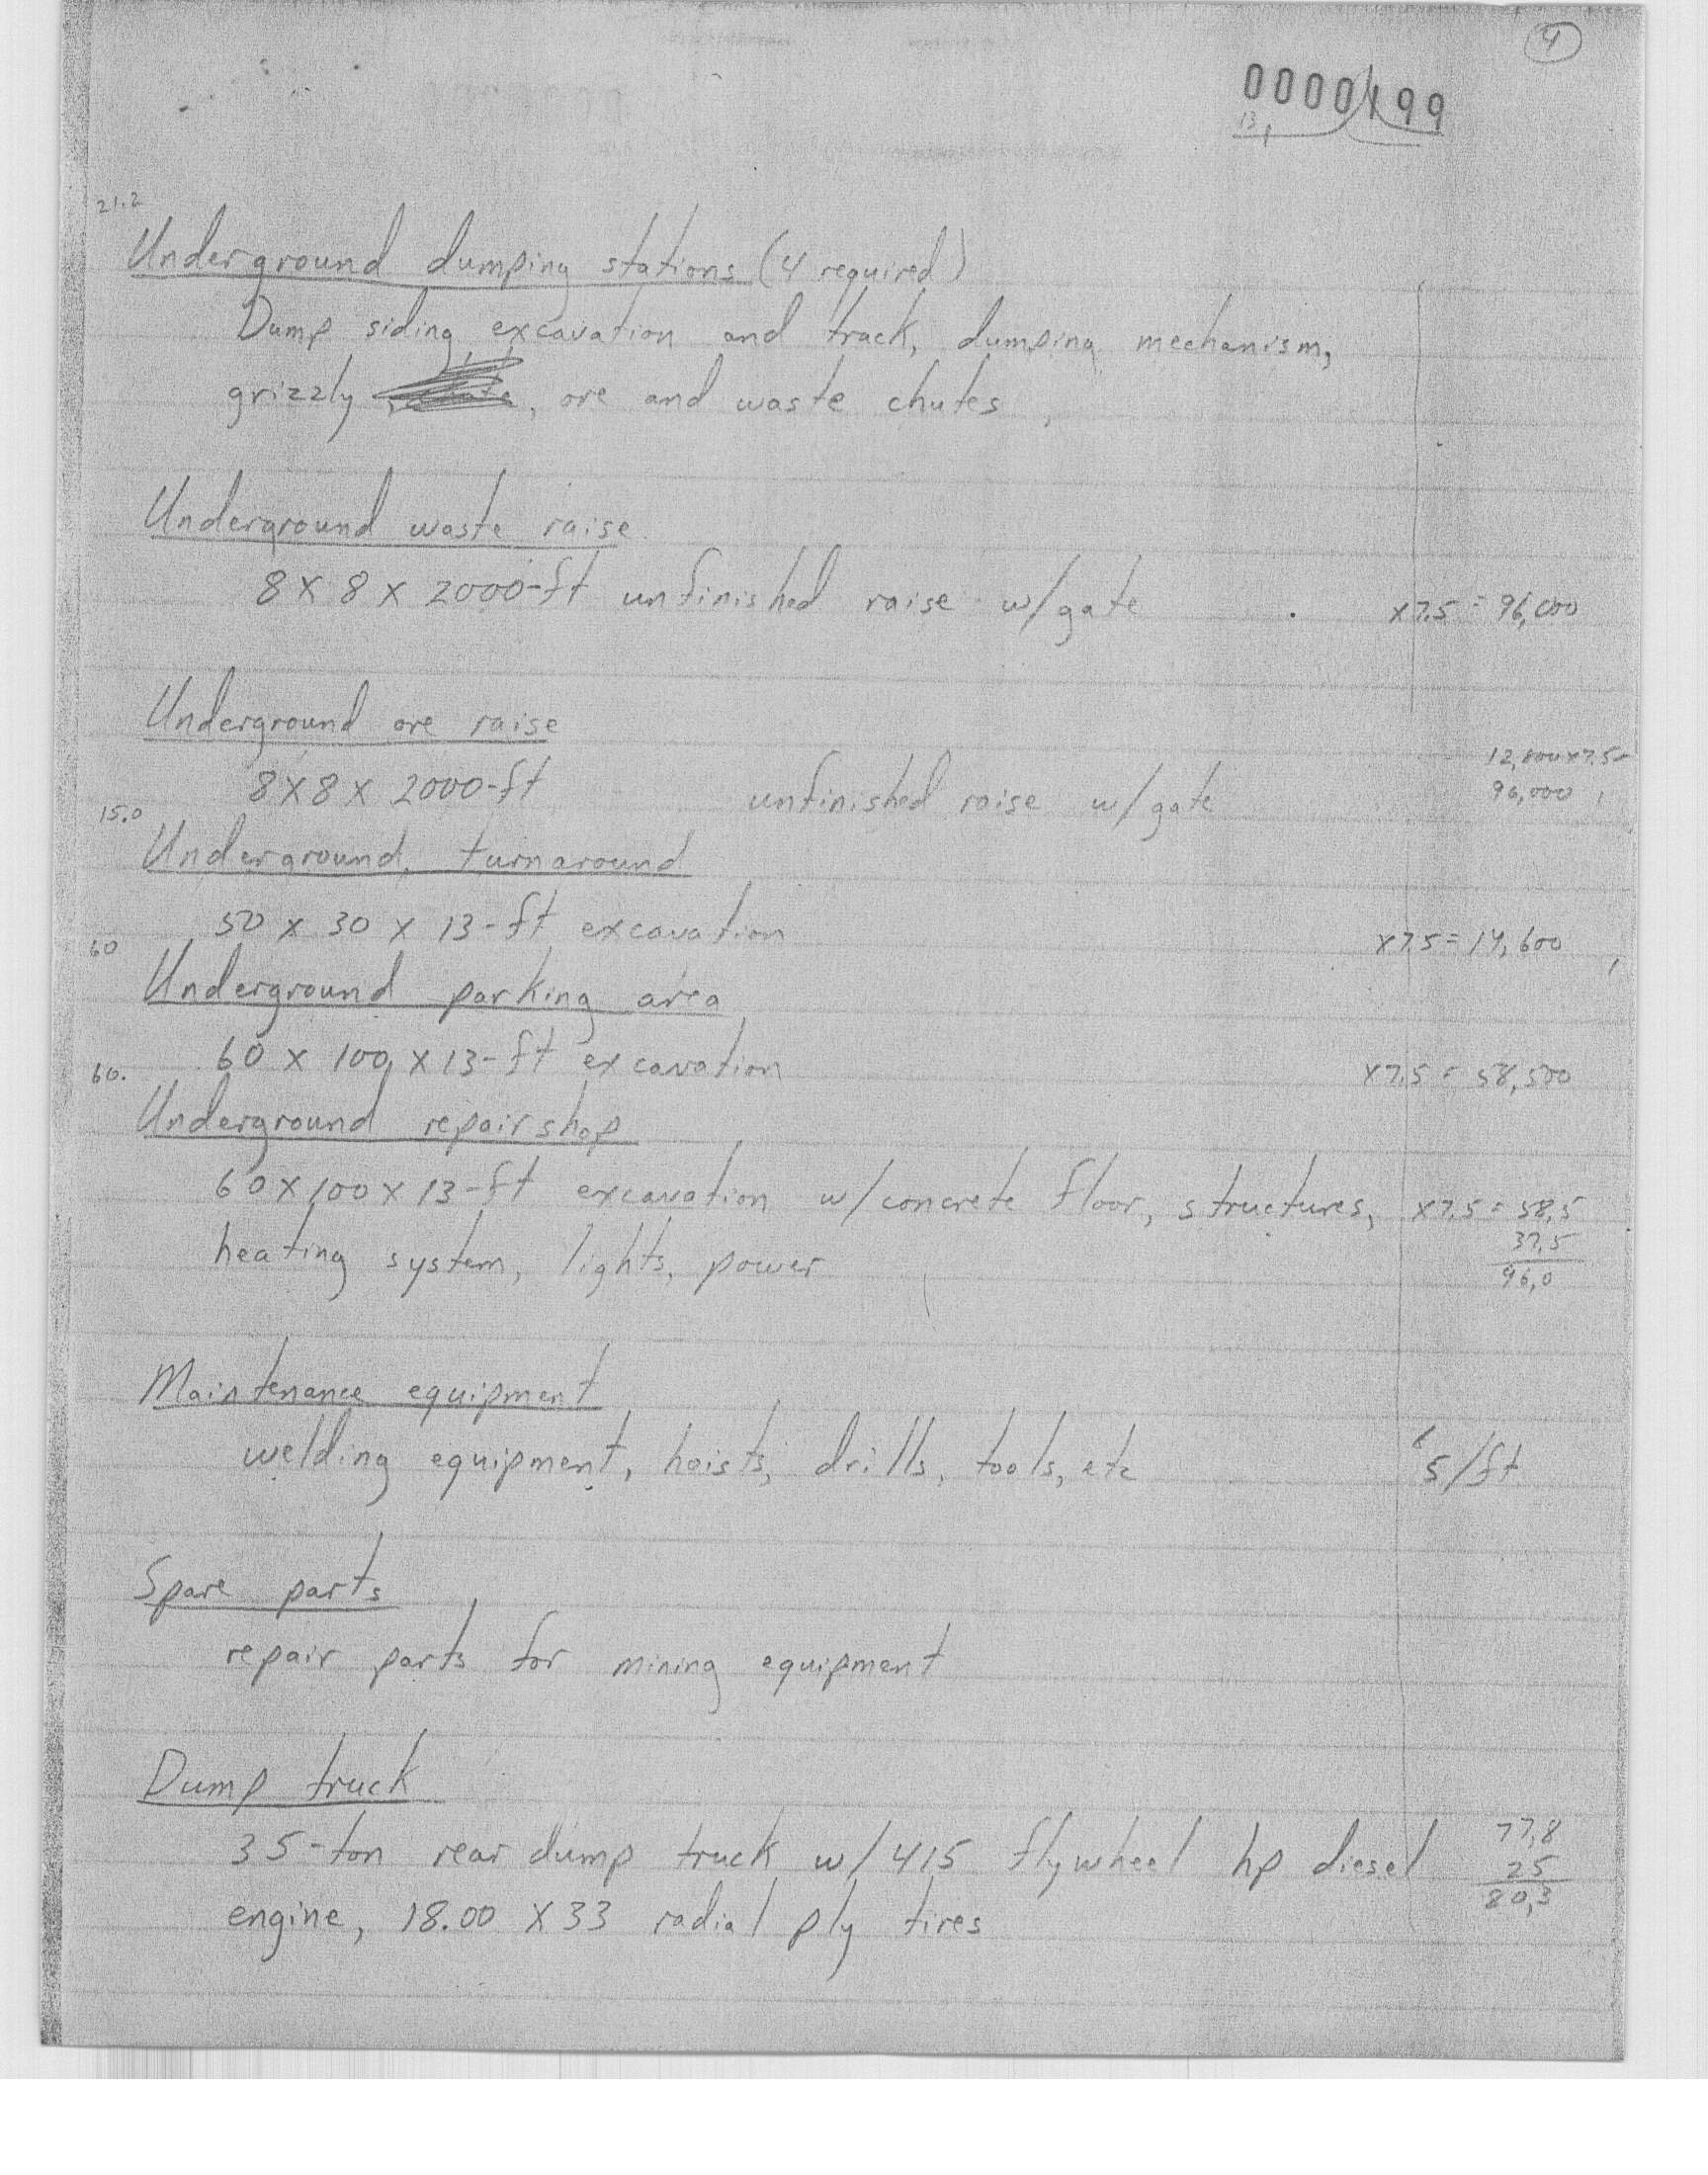 4
0000199
13,
21.2
Underground dumping stations (4 required)
Dump siding excavation and track, dumping mechanism,
grizzly , ore and waste chutes
Underground waste raise
8 x 8 x 2000-ft unfinished raise w/gate x7.5 = 96,000
Underground ore raise
12,800x7.5=
8x8x 2000-ft unfinished raise w/gate 96,000
15.0
Underground turnaround
50 x 30 x 13-ft excavation x7.5= 14,600
60
Underground parking area
60 x 100 x 13-ft excavation x7.5 = 58,500
60.
Underground repair shop
60x100x13-ft excavation w/concrete floor, structures, x7.5 = 58.5
37.5
heating system, lights, power 96.0
Maintenance equipment
welding equipment, hoists, drills, tools, etc 5/ft
Spare parts
repair parts for mining equipment
Dump truck
77.8
35-ton rear dump truck w/415 flywheel hp diesel 25
engine, 18.00 X 33 radial ply tires 80.3